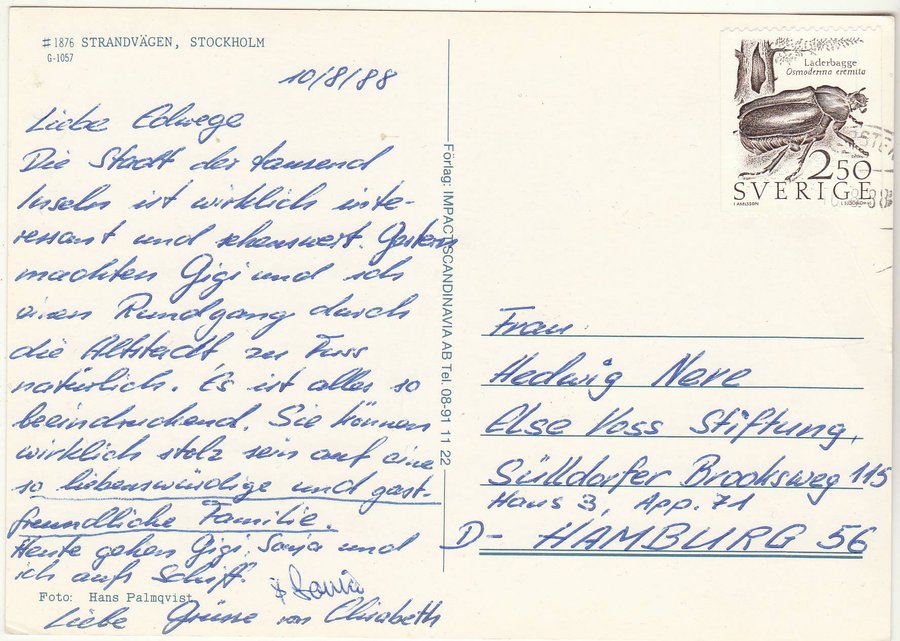 #1876 STRANDVÄGEN, STOCKHOLM
G-1057
10/8/88
Liebe Edwege
Die Stadt der tausend
Inseln ist wirklich inte-
ressant und sehenswert. Gestern
machten Gigi und ich
einen Rundgang durch
die Altstadt zu Fuss
natürlich. Es ist alles so
beeindruckend. Sie können
wirklich stolz sein auf eine
so liebenswürdige und gast-
freundliche Familie.
Heute gehen Gigi, Sonja und
ich aufs Schiff.
Foto: Hans Palmqvist
Liebe Grüsse von Elisabeth
Förlag: IMPACT SCANDINAVIA AB Tel. 08-91 11 22
Läderbagge
Osmoderma eremita
2.50
SVERIGE
Frau
Hedwig Neve
Else Voss Stiftung,
Sülldorfer Brooksweg 115
Haus 3, App. 71
D- HAMBURG 56